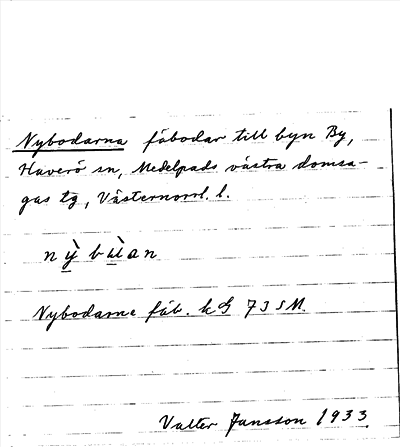 Nybodarna fäbodar till byn By,
Haverö sn, Medelpads västra domsa-
gas tg, Västernorrl. l.
nỳbùan
Nybodarne fäb. kG 73 SM.
Valter Jansson 1933.